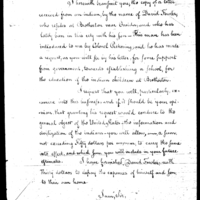 I herewith transmit you, the copy of a letter,
received from an indian, by the name of David Fowler,
who resides at Brotherton near Oneida, and who has
lately been in this city with his son. This man has been
introduced to me by Colonel Pickering, and he has made
a request, as you will see by his letter, for some support
from government, towards establishing a school, for
the education of the indian children at Brotherton.
I request that you will, particularly, ex-
amine into this subject, and if it should be your opin-
ion, that granting his request would conduce to the
general object of the United States, the information and
civilization of the indians, you will allow, a sum
not exceeding Fifty dollars per annum, to carry the same
into effect, and which you will include in your future
estimates.
I have furnished David Fowler, with
Thirty dollars to defray the expenses of himself and son
to their own home.
I am, Sir,